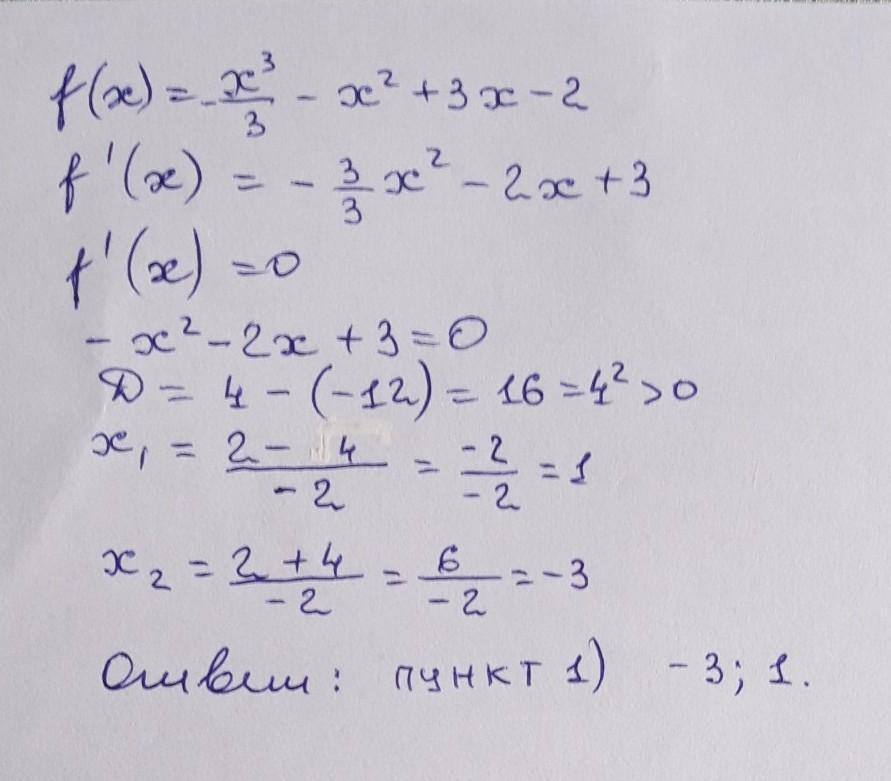 f(x) = -x³/3 - x² + 3x - 2
f'(x) = - 3/3 x² - 2x + 3
f'(x) = 0
- x² - 2x + 3 = 0
D = 4 - (-12) = 16 = 4² > 0
x₁ = (2 - 4)/(-2) = (-2)/(-2) = 1
x₂ = (2 + 4)/(-2) = 6/(-2) = -3
Ответ: пункт 1) -3; 1.